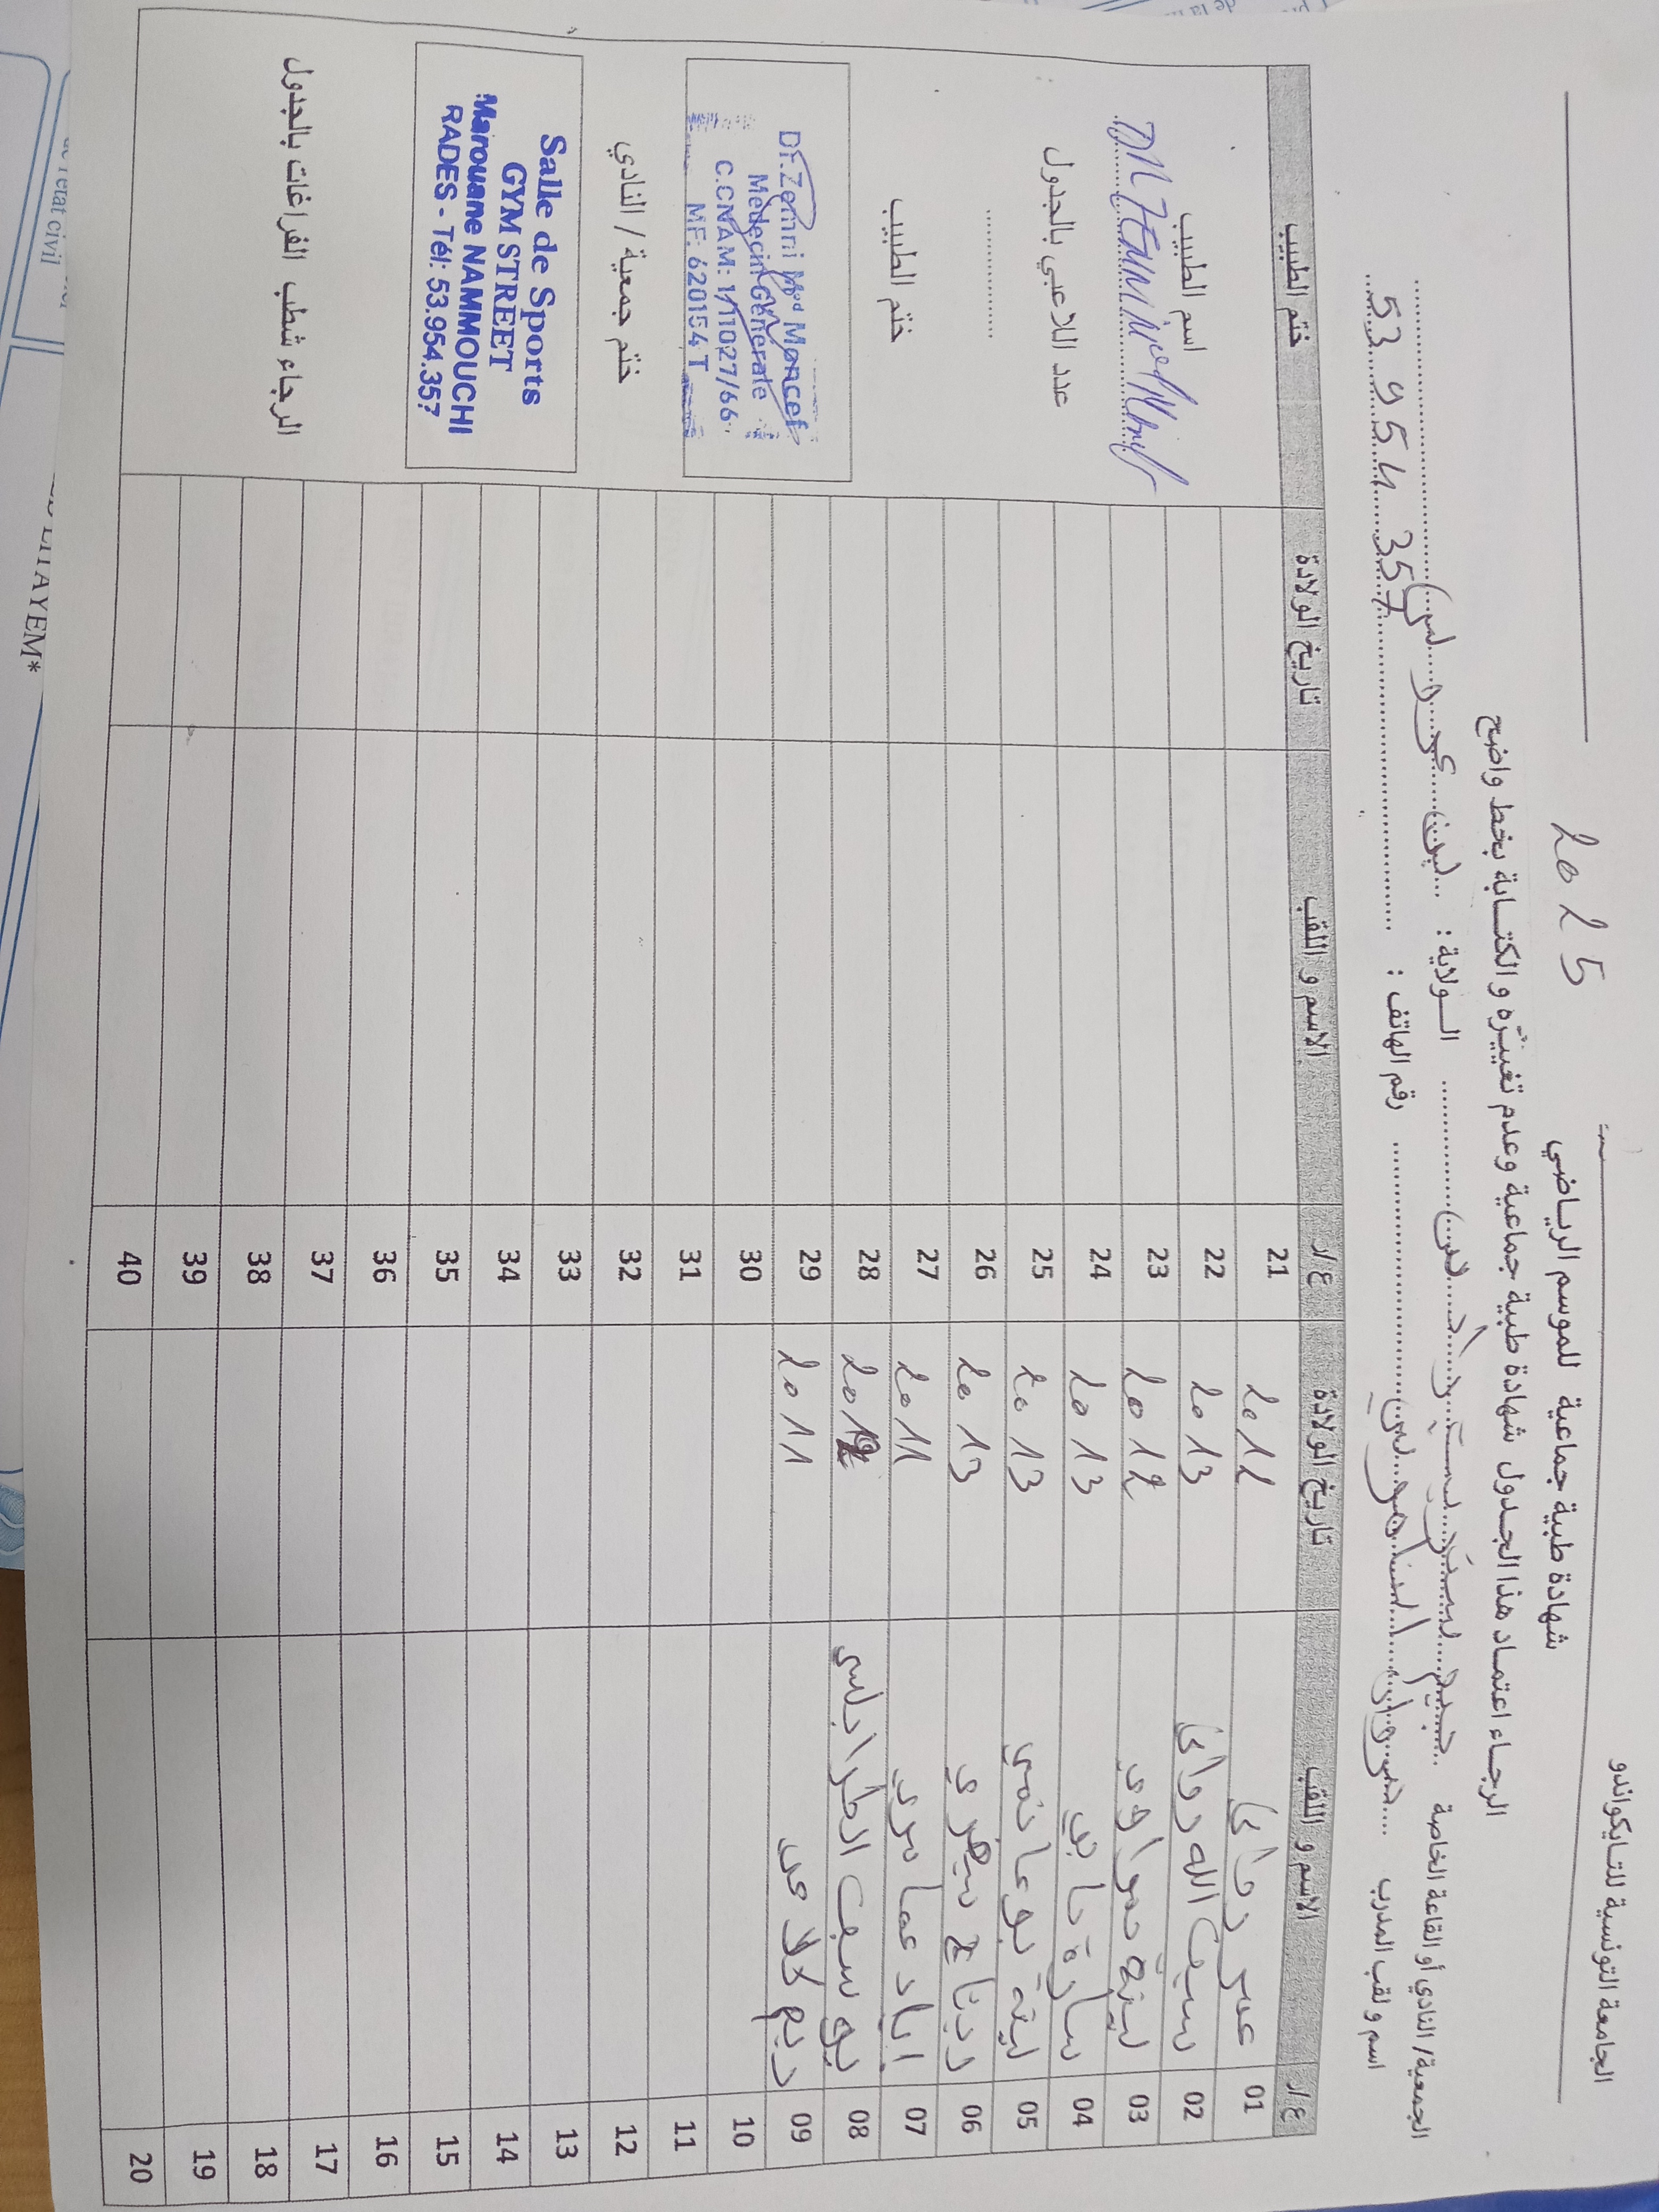 الجامعة التونسية للتايكواندو
شهادة طبية جماعية للموسم الرياضي 2025
الرجاء اعتماد هذا الجدول شهادة طبية جماعية وعدم تغييره والكتابة بخط واضح
الجمعية/ النادي أو القاعة الخاصة جيم ستريت الولاية : بن عروس
اسم و لقب المدرب مروان النموشي رقم الهاتف : 53 954 357
ع/ر الاسم و اللقب تاريخ الولادة ع/ر الاسم و اللقب تاريخ الولادة ختم الطبيب
01 2011 21
02 سيف الله 2013 22
03 لينة 2012 23
04 سارة 2013 24
05 2013 25
06 2013 26
07 اياد عماري 2011 27
08 يوسف الطرابلسي 2012 28
09 ريم 2011 29
10 30
11 31
12 32
13 33
14 34
15 35
16 36
17 37
18 38
19 39
20 40
اسم الطبيب
عدد اللاعبي بالجدول
ختم الطبيب
Dr. Zemni Med Moncef
Médecin Générale
C.CNAM: 1/11027/66
MF: 620154T
ختم جمعية / النادي
Salle de Sports
GYM STREET
Marouane NAMMOUCHI
RADES - Tél: 53.954.357
الرجاء شطب الفراغات بالجدول
de l'état civil